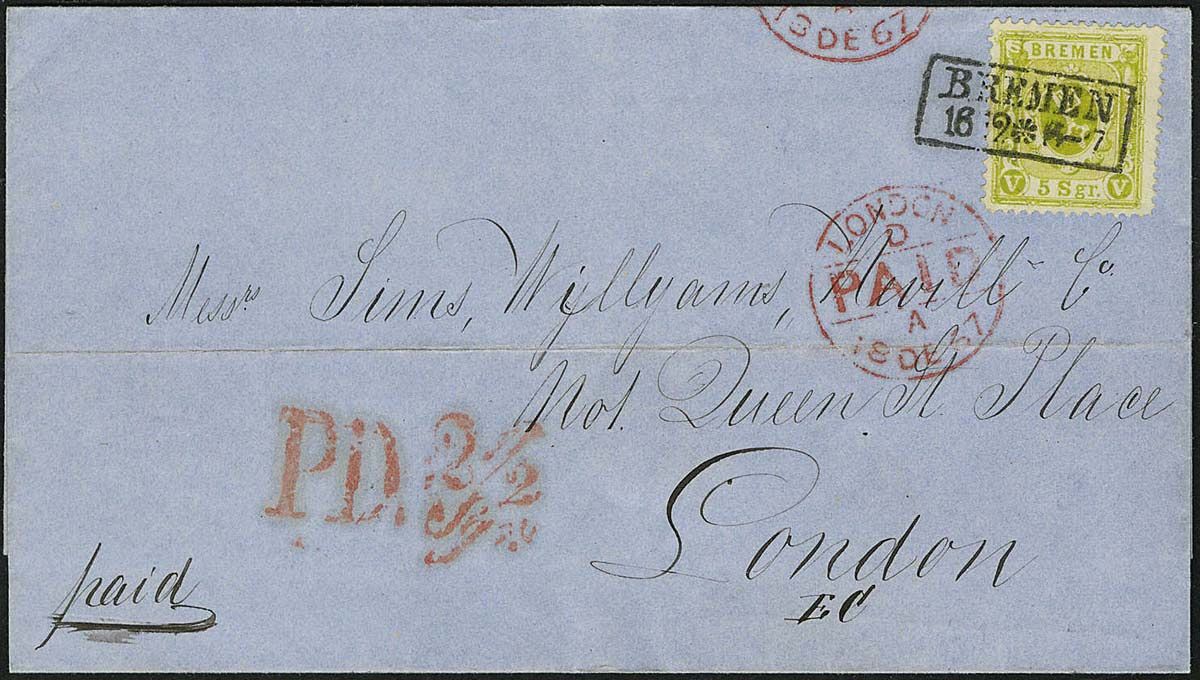 18 DE 67
BREMEN
BREMEN
16 12 * 6-7
V 5 Sgr. V
LONDON
D
PAID
A
18 DE 67
Messrs Sims, Wyllyams, Nevill Co
No1. Queen St. Place
London
EC
P.D. 2 1/2
Sgr.
paid